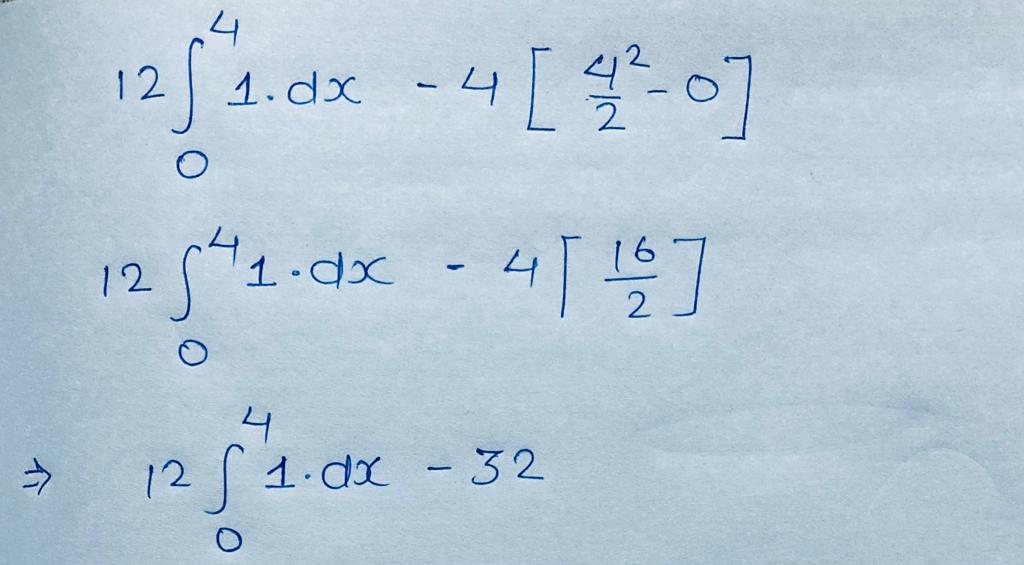 12 ∫₀⁴ 1.dx - 4 [ 4²/2 - 0 ]
12 ∫₀⁴ 1.dx - 4 [ 16/2 ]
⇒ 12 ∫₀⁴ 1.dx - 32